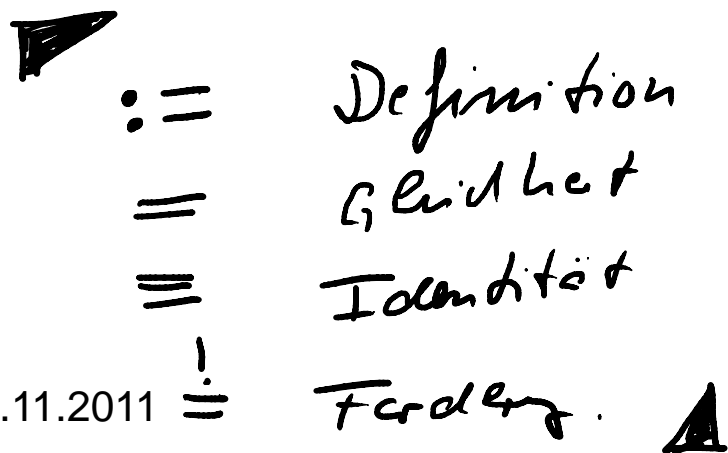 := Definition
= Gleichheit
≡ Identität
.11.2011 =! Forderung.